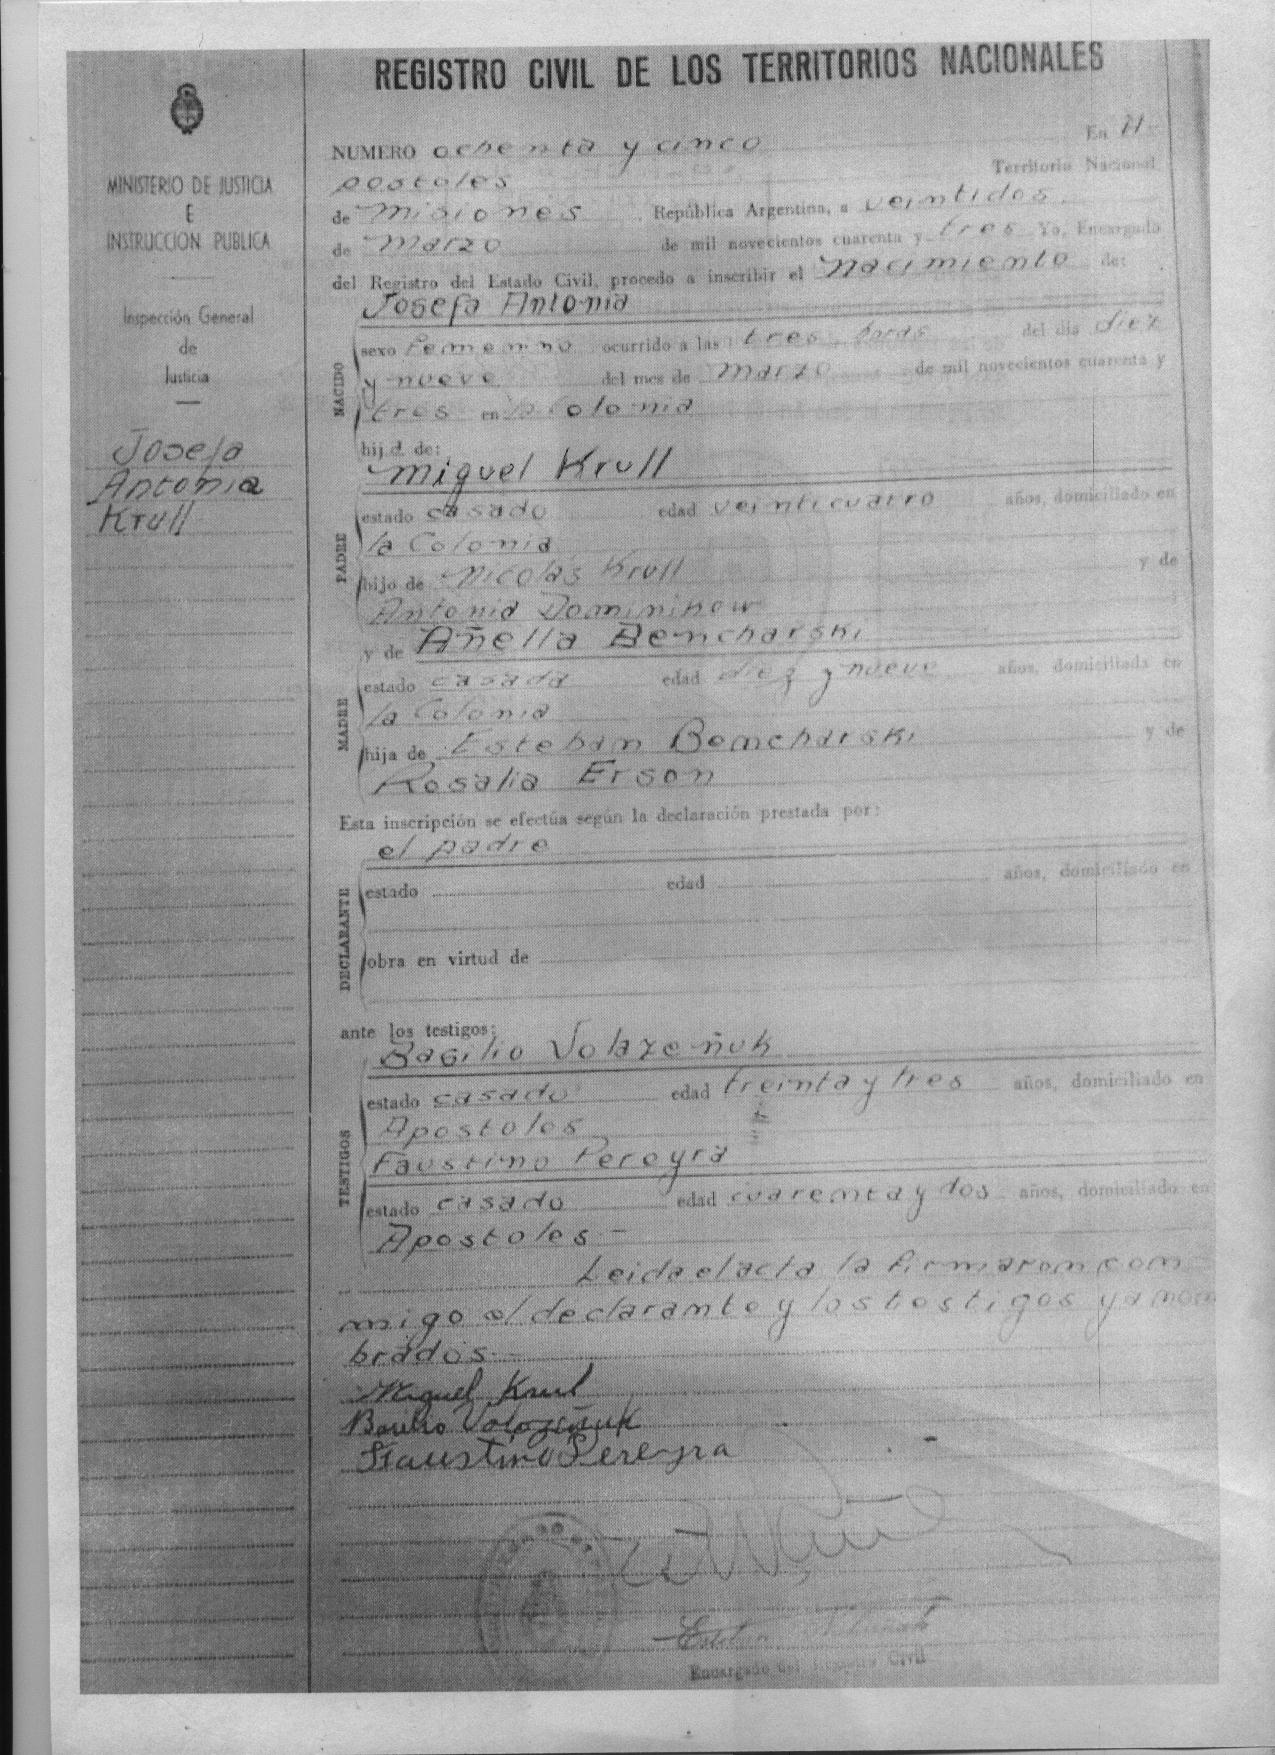 REGISTRO CIVIL DE LOS TERRITORIOS NACIONALES
MINISTERIO DE JUSTICIA
E
INSTRUCCION PUBLICA
Inspección General
de
Justicia
Josefa
Antonia
Krull
NUMERO ochenta y cinco En A
postoles Territorio Nacional
de Misiones, República Argentina, a veintidos
de Marzo de mil novecientos cuarenta y tres Yo, Encargado
del Registro del Estado Civil, procedo a inscribir el nacimiento de:
NACIDO
Josefa Antonia
sexo femenino ocurrido a las tres horas del día diez
y nueve del mes de marzo de mil novecientos cuarenta y
tres en la Colonia
hij.d. de:
PADRE
Miguel Krull
estado casado edad veinticuatro años, domiciliado en
la Colonia
hijo de Nicolás Krull y de
Antonia
MADRE
y de Añella Bemcharski
estado casada edad diez y nueve años, domiciliada en
la Colonia
hija de Esteban Bomcharski y de
Rosalia Erson
Esta inscripción se efectúa según la declaración prestada por:
DECLARANTE
el padre
estado edad años, domiciliado en
obra en virtud de
ante los testigos:
TESTIGOS
Basilio Volazeñuk
estado casado edad treinta y tres años, domiciliado en
Apostoles
Faustino Pereyra
estado casado edad cuarenta y dos años, domiciliado en
Apostoles -
Leida el acta la firmaron con
migo el declarante y los testigos ya nom
brados -
Miguel Krul
Volozeñuk
Faustino Pereyra
Encargado del Registro Civil